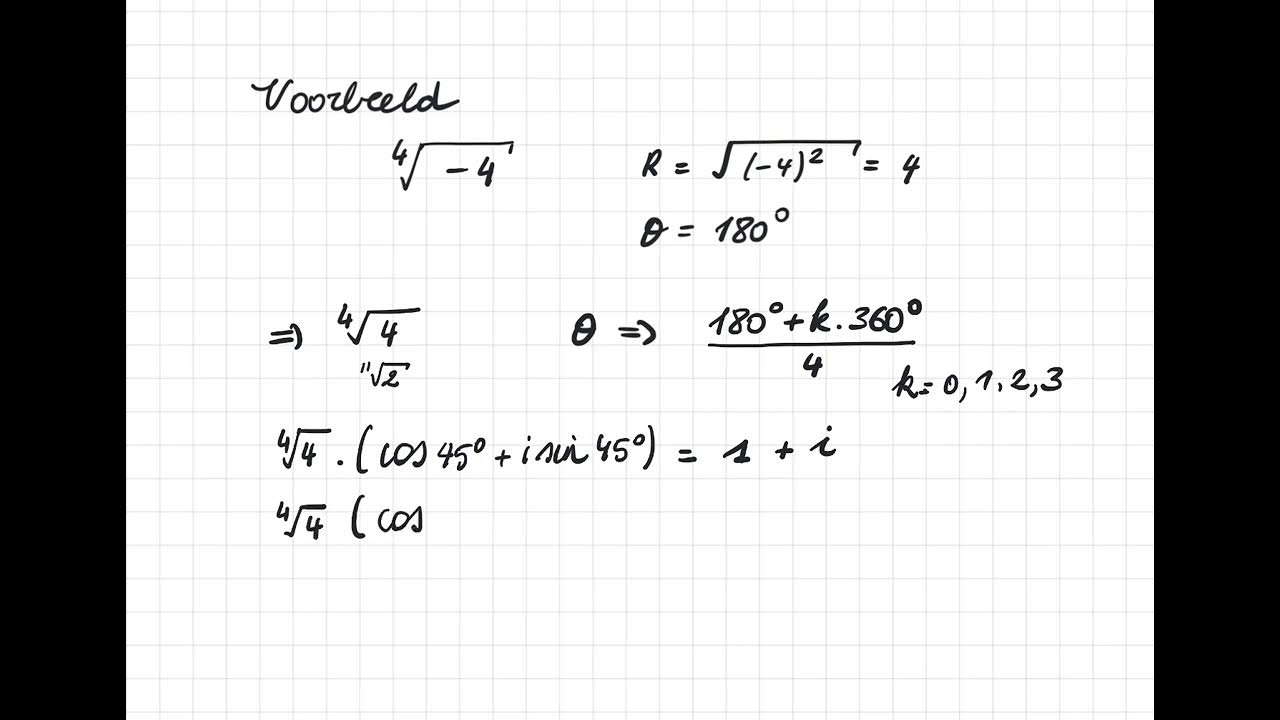 Voorbeeld
⁴√-4    R = √(-4)² = 4
θ = 180°
⇒ ⁴√4    θ ⇒ (180° + k.360°)/4
"√2    k = 0, 1, 2, 3
⁴√4 . (cos 45° + i sin 45°) = 1 + i
⁴√4 (cos